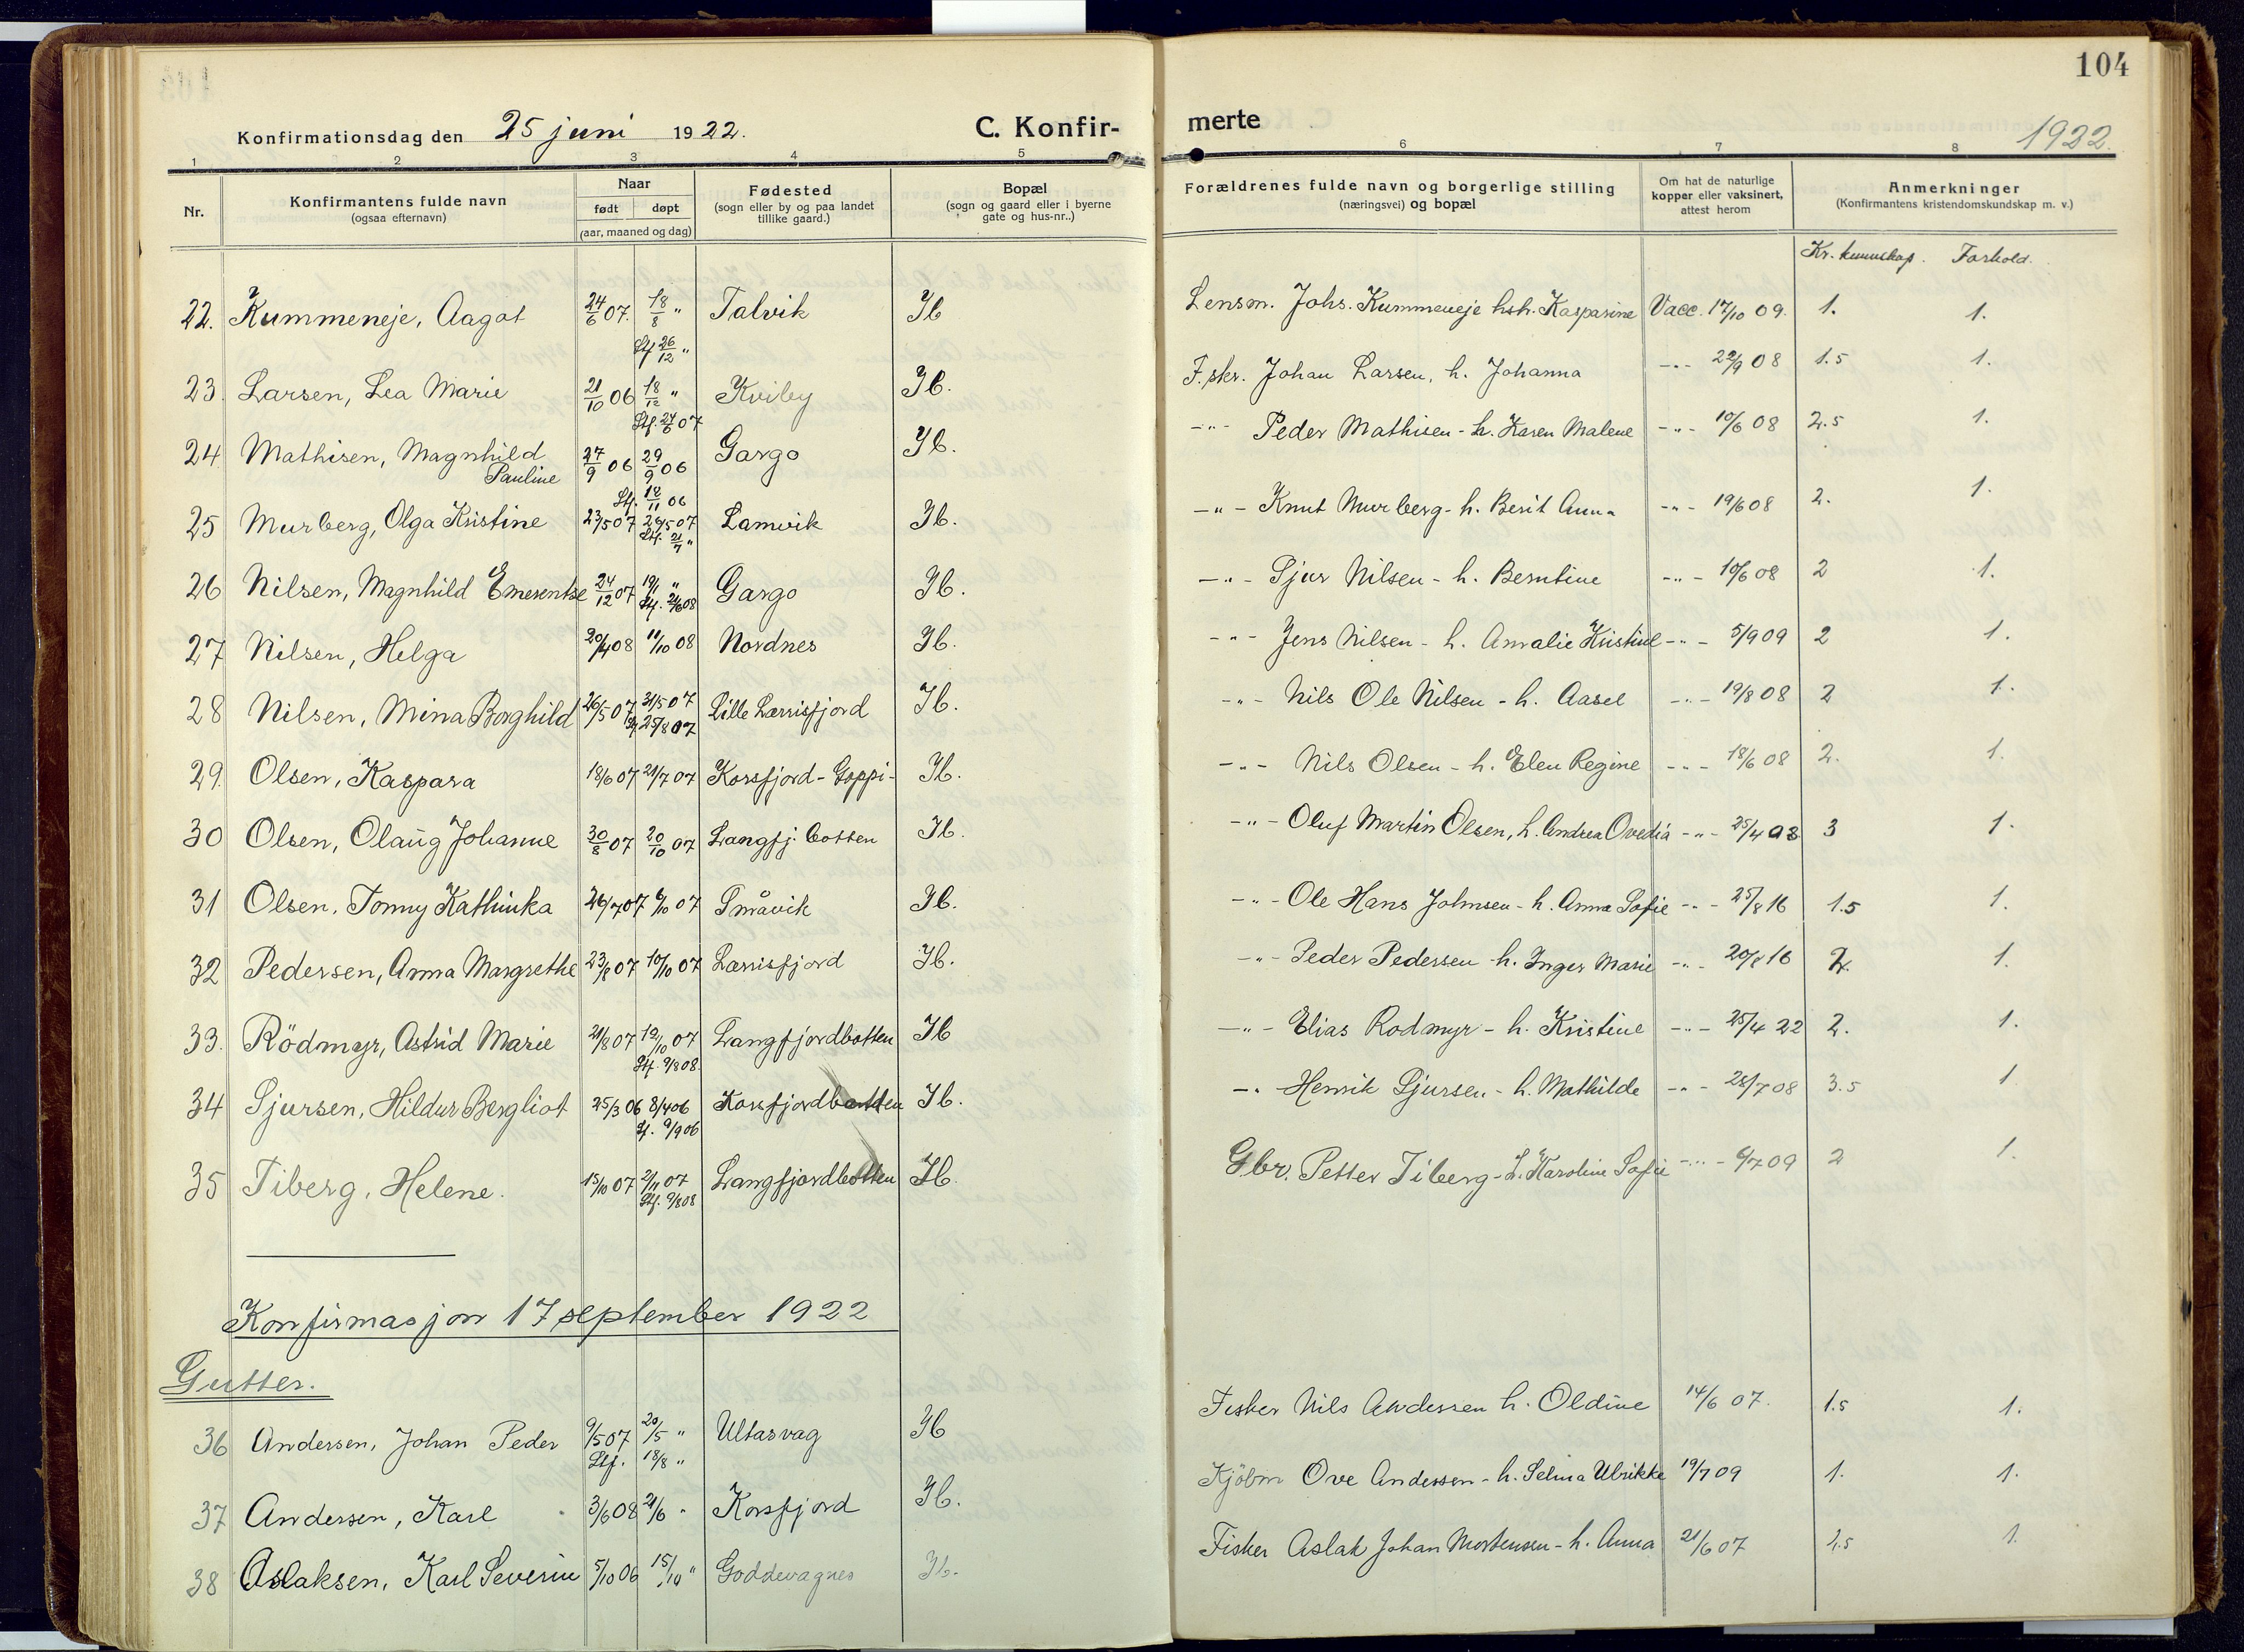 104
Konfirmationsdag den 25 juni 1922.
C. Konfir-
merte
1922.
1 2 3 4 5 6 7 8
Nr.
Konfirmantens fulde navn
(ogsaa efternavn)
Naar
født døpt
(aar, maaned og dag)
Fødested
(sogn eller by og paa landet
tillike gaard.)
Bopæl
(sogn og gaard eller i byerne
gate og hus-nr..)
Forældrenes fulde navn og borgerlige stilling
(næringsvei) og bopæl
Om hat de naturlige
kopper eller vaksinert,
attest herom
Anmerkninger
(Konfirmantens kristendomskundskap m. v.)
Kr. kunnskap. Forhold.
22. Kummeneje, Aagot 24/6 07. 18/8 " Talvik Ib Lensm. Johs. Kummeneje hstr. Kasparine Vacc. 17/10 09. 1. 1.
Stf 26/12 "
23. Larsen, Lea Marie 21/10 06 18/12 " Kviby Ib. F.skr. Johan Larsen, h. Johanna -"- 22/9 08 1.5 1.
Stf. 24/6 07
24 Mathisen, Magnhild 27/9 06 29/9 06 Gargo Ib. -"- Peder Mathisen - h. Karen Malene -"- 10/6 08 2.5 1.
Pauline
Stf. 18/11 06
25 Murberg, Olga Kristine 23/5 07 26/5 07 Lamvik Ib. -"- Knut Murberg - h. Berit Anna -"- 19/6 08 2. 1.
Stf. 21/7 "
26 Nilsen, Magnhild Emerentse 24/12 07 19/1 " Gargo Ib. -"- Sjur Nilsen - h. Berntine -"- 10/6 08 2 1.
Stf. 21/6 08
27 Nilsen, Helga 20/4 08 11/10 08 Nordnes Ib. -"- Jens Nilsen - h. Amalie Kristine -"- 5/9 09 2 1.
28 Nilsen, Mina Borghild 26/5 07 31/5 07 Lille Lerrisfjord Ib. -"- Nils Ole Nilsen - h. Aasel -"- 19/8 08 2 1.
Stf. 25/8 07
29. Olsen, Kaspara 18/6 07 21/7 07 Korsfjord-Goppi- Ib. -"- Nils Olsen - h. Elen Regine -"- 18/6 08 2. 1.
30 Olsen, Olaug Johanne 30/8 07 20/10 07 Langfj. botten Ib. -"- Oluf Martin Olsen, h. Andrea Ovedia -"- 25/4 08 3 1.
31 Olsen, Tonny Kathinka 26/7 07 6/10 07 Småvik Ib. -"- Ole Hans Johnsen - h. Anna Sofie -"- 25/8 16 1.5 1.
32 Pedersen, Anna Margrethe 23/8 07 10/10 07 Lerrisfjord Ib. -"- Peder Pedersen - h. Inger Marie -"- 20/8 16 2. 1.
33. Rödmyr, Astrid Marie 21/8 07 12/10 07 Langfjordbotten Ib -"- Elias Rodmyr - h. Kristine -"- 25/4 22 2. 1.
Stf. 9/8 08.
34 Sjursen, Hildur Bergliot 25/3 06 8/4 06 Korsfjordbotten Ib. -"- Henrik Sjursen - h. Mathilde -"- 28/7 08 3.5 1
Stf. 9/9 06
35 Tiberg, Helene. 15/10 07 2/11 07 Langfjordbotten Ib. Gbr. Petter Tiberg - h. Karoline Sofie -"- 6/7 09 2 1.
Stf. 9/8 08
Konfirmasjon 17 september 1922
Gutter.
36 Andersen, Johan Peder 9/5 07 20/5 " Ultasvag Ib Fisker Nils Andersen h. Oldine 14/6 07. 1.5 1.
Stf. 18/8 "
37 Andersen, Karl 3/6 08 21/6 " Korsfjord Ib. Kjöbm Ove Andersen - h. Selma Ulrikke 19/7 09 1. 1.
38 Aslaksen, Karl Severin 5/10 06 15/10 " Goddevagnes Ib. Fisker Aslak Johan Mortensen - h. Anna 21/6 07 1.5 1.